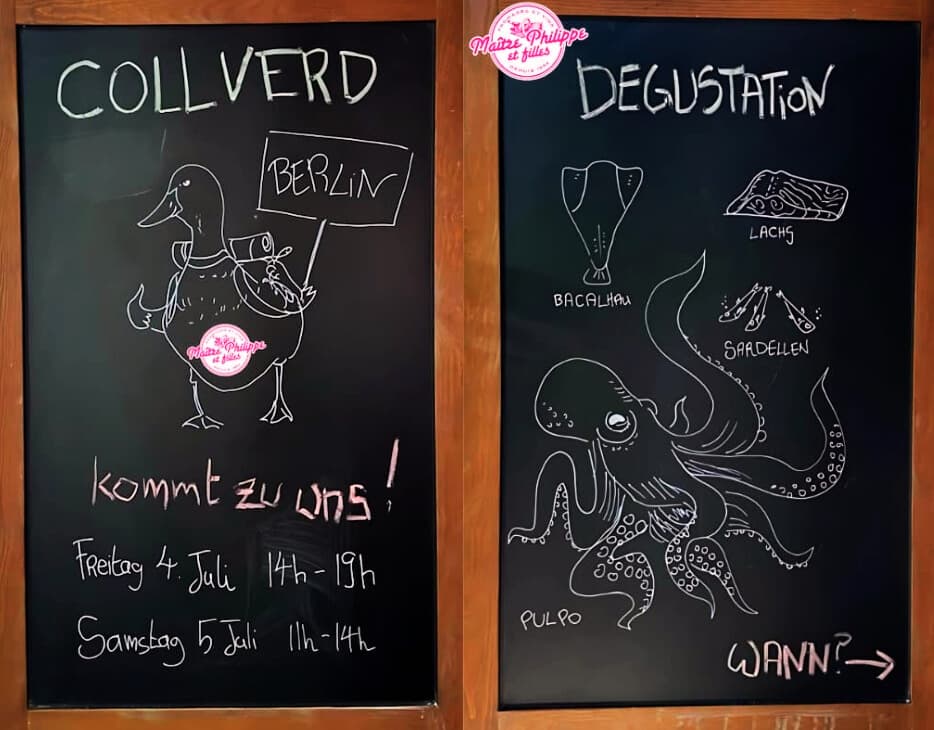 COLLVERD
BERLiN
Maître Philippe
et filles
kommt zu uns!
Freitag 4. Juli 14h-19h
Samstag 5 Juli 11h-14h
Maître Philippe
et filles
DEPUIS 1994
DEGUSTATiON
BACALHAU
LACHS
SARDELLEN
PULPO
WANN? →